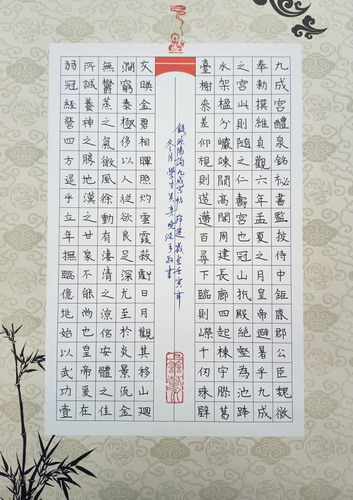 九成宮醴泉銘祕書監按侍中鉅鹿郡公臣魏徵
奉勅撰維貞觀六年孟夏之月皇帝避暑乎九成
之宮此則隨之仁壽宮也冠山抗殿絕壑為池跨
水架楹分巖竦闕高閣周建長廊四起棟宇膠葛
臺榭參差仰視則迢遰百尋下臨則嶸千仞珠璧
錄歐陽詢九成宮帖一節歲在壬寅年
冬月書
交暎金碧相暉照灼雲霞蔽虧日月觀其移山廻
澗窮泰極侈以人從欲良足深尤至於炎景流金
無鬱蒸之氣微風徐動有淒清之涼信安體之佳
所誠養神之勝地漢之甘泉不能尚也皇帝爰在
弱冠經營四方逮乎立年撫臨億兆始以武功壹